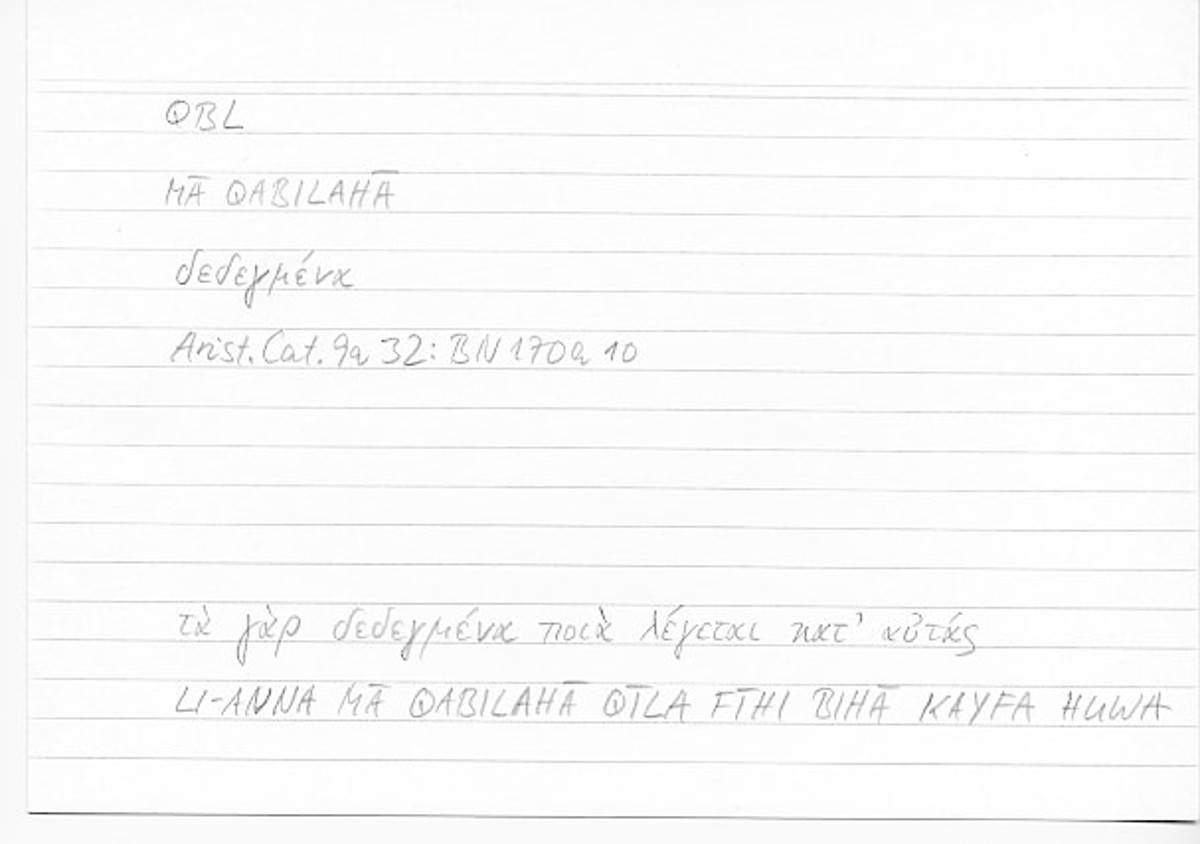 QBL
MĀ QABILAHĀ
δεδεγμένα
Arist. Cat. 9a 32: BN 170a 10
τὰ γὰρ δεδεγμένα ποιὰ λέγεται κατ' αὐτάς
LI-ANNA MĀ QABILAHĀ QĪLA FĪHI BIHĀ KAYFA HUWA